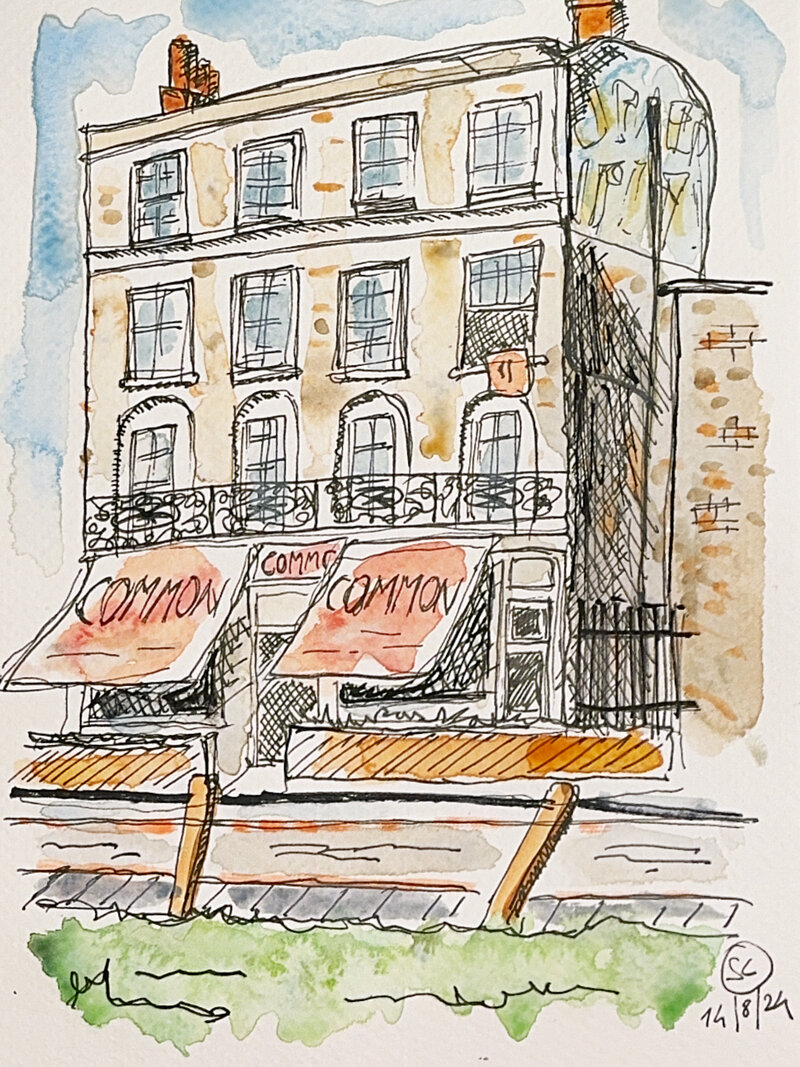 COMMON
COMMC
COMMON
SC
14/8/24